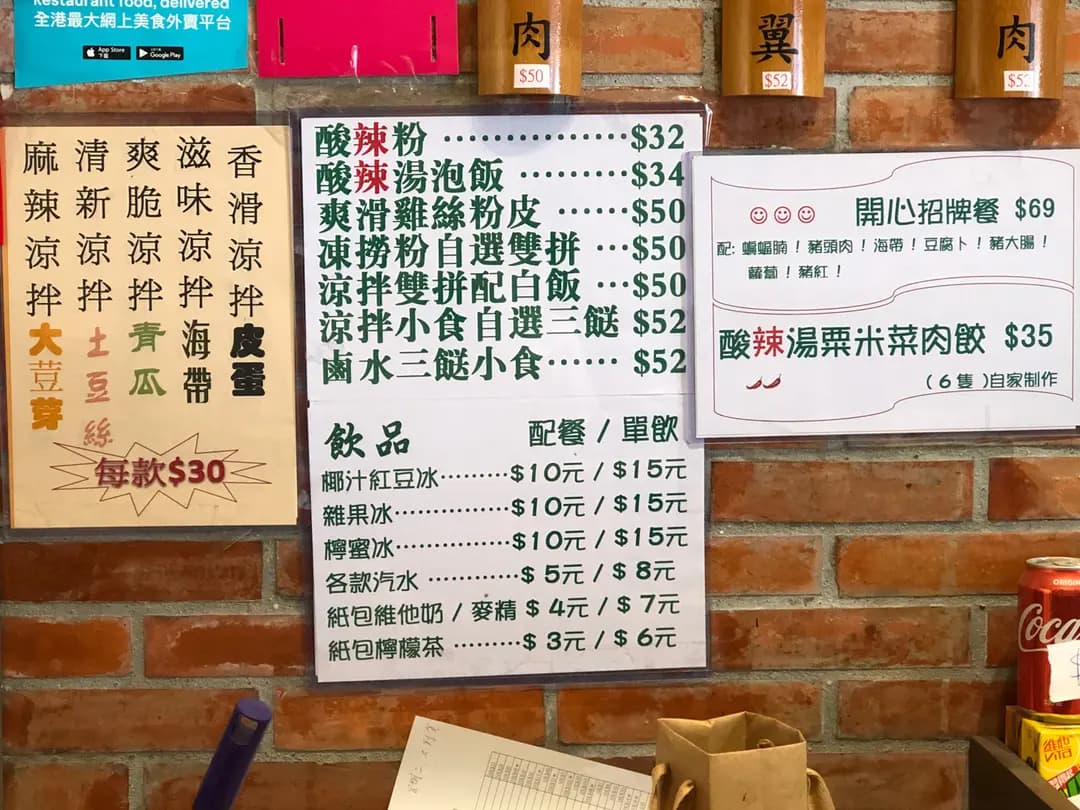 Restaurant food, delivered
全港最大網上美食外賣平台
App Store
下載
Google Play
肉
$50
翼
$52
肉
香滑涼拌皮蛋
滋味涼拌海帶
爽脆涼拌青瓜
清新涼拌土豆絲
麻辣涼拌大荳芽
每款$30
酸辣粉 ················$32
酸辣湯泡飯 ·········$34
爽滑雞絲粉皮 ······$50
凍撈粉自選雙拼 ···$50
涼拌雙拼配白飯 ···$50
涼拌小食自選三餸 $52
鹵水三餸小食······ $52
飲品 配餐 / 單飲
椰汁紅豆冰·········$10元 / $15元
雜果冰···············$10元 / $15元
檸蜜冰···············$10元 / $15元
各款汽水 ············$ 5元 / $ 8元
紙包維他奶 / 麥精 $ 4元 / $ 7元
紙包檸檬茶 ·········$ 3元 / $ 6元
開心招牌餐 $69
配: 蝙蝠腩！豬頭肉！海帶！豆腐卜！豬大腸！
蘿蔔！豬紅！
酸辣湯粟米菜肉餃 $35
( 6 隻 )自家制作
ORIGIN
Coca
維他